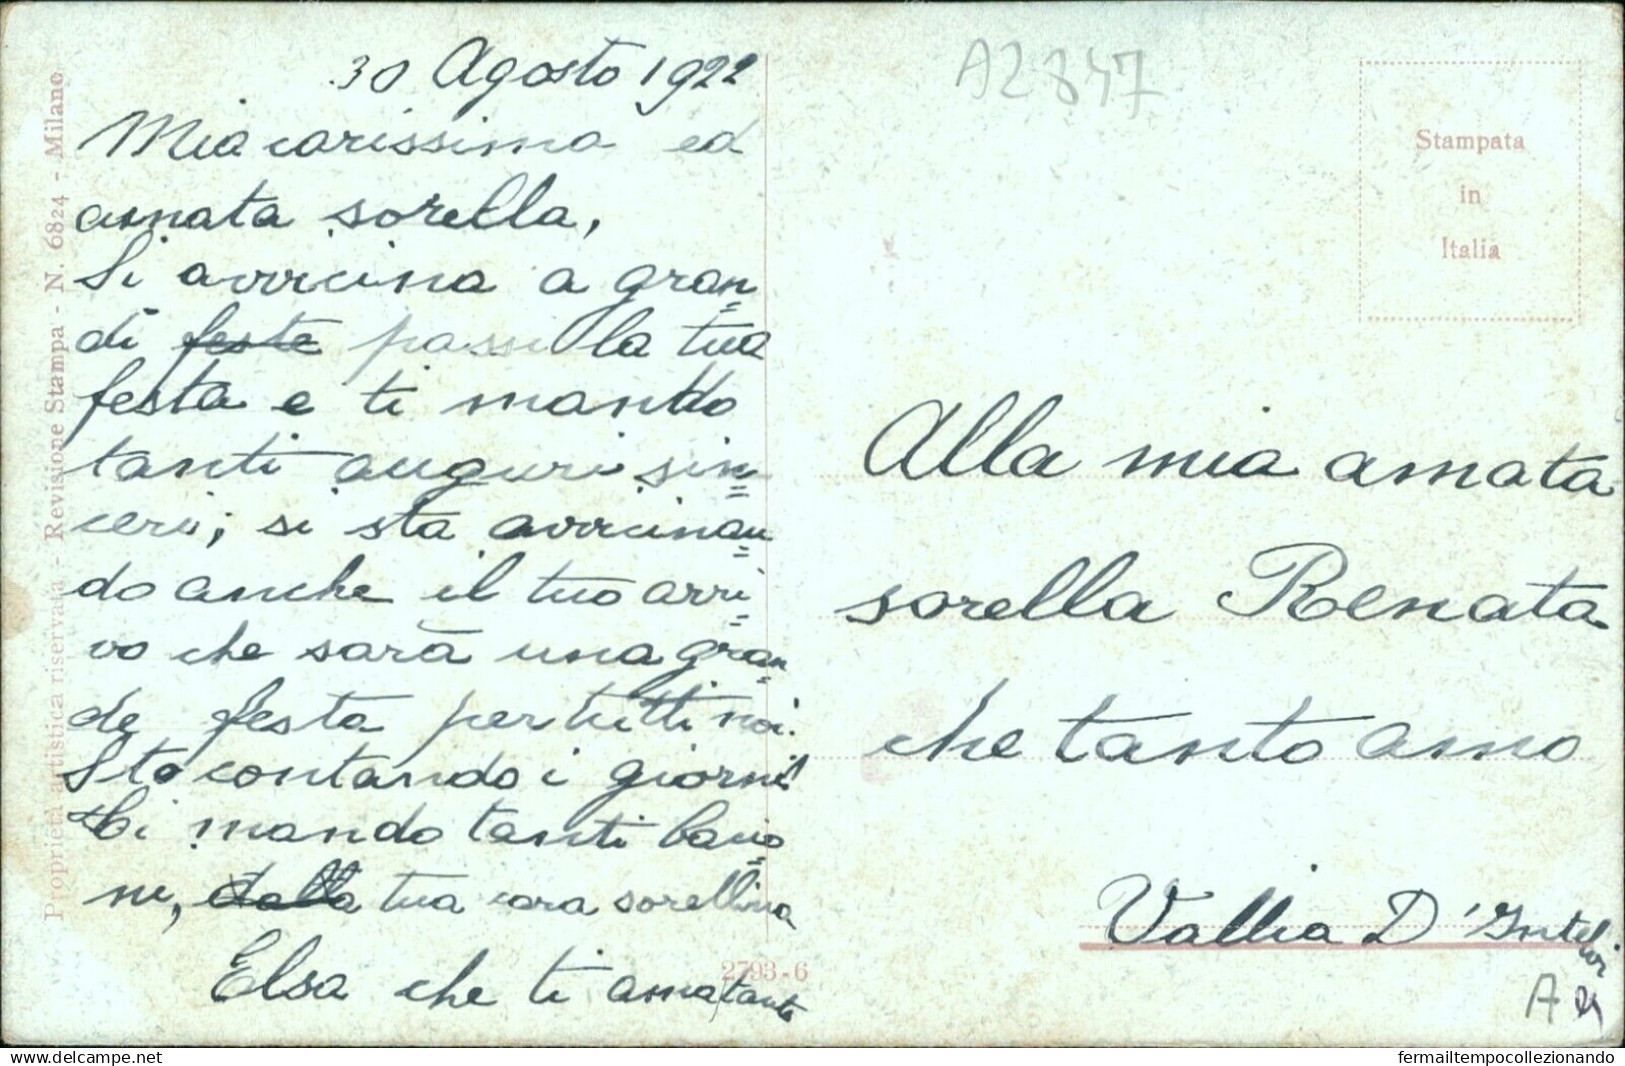 30 Agosto 1922
Mia carissima ed
amata sorella,
Si avvicina a gran=
di feste passi la tua
festa e ti mando
tanti auguri sin=
ceri; si sta avvicinan=
do anche il tuo arri=
vo che sarà una gran=
de festa per tutti noi.
Sto contando i giorni!
Ti mando tanti bacio=
ni, dalla tua cara sorellina
Elsa che ti ama tanto
Proprietà artistica riservata - Revisione Stampa - N. 6824 - Milano
2793-6
A2847
Stampata
in
Italia
Alla mia amata
sorella Renata
che tanto amo
Vallia D'Intelvi
A
fermailtempocollezionando
www.delcampe.net